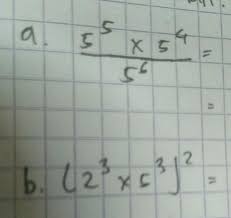 a. 5^5 x 5^4 =
5^6
=
b. (2^3 x 5^3)^2 =